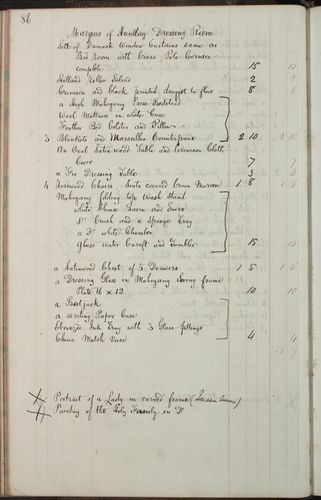 86
Marquis of Huntley Dressing Room
Sett of Damask Window Curtains same as
Bed Room with brass Pole Cornice
complete 15 15
Holland Roller blind 2 2
Crimson and black printed drugget to floor 8 8
a High Mahogany Press Bedstead
Wool Mattress in white Case
Feather Bed Bolster and Pillow
3 Blankets and Marseilles Counterpane 2 10 2 10
An Oval Satinwood Table and Crimson Cloth
Cover 7
a Fir Dressing Table 3 3
4 Rosewood Chairs, Seats covered brown Moreen 1 8 1 8
Mahogany folding top Wash Stand
white China Basin and Ewer
Do Brush and a Sponge Tray
a Do white Chamber
Glass Water Caraft and Tumbler 15 15
a Satinwood Chest of 5 Drawers 1 5 1 5
a Dressing Glass in Mahogany Swing frame
Plate 16 x 12 10 10
a Bootjack
a writing Paper Case
Ebonized Ink Tray with 3 Glass fittings
China Match Vase 4 4
Portrait of a Lady in carved frame (Queen Anne)
Painting of the Holy Family in Do